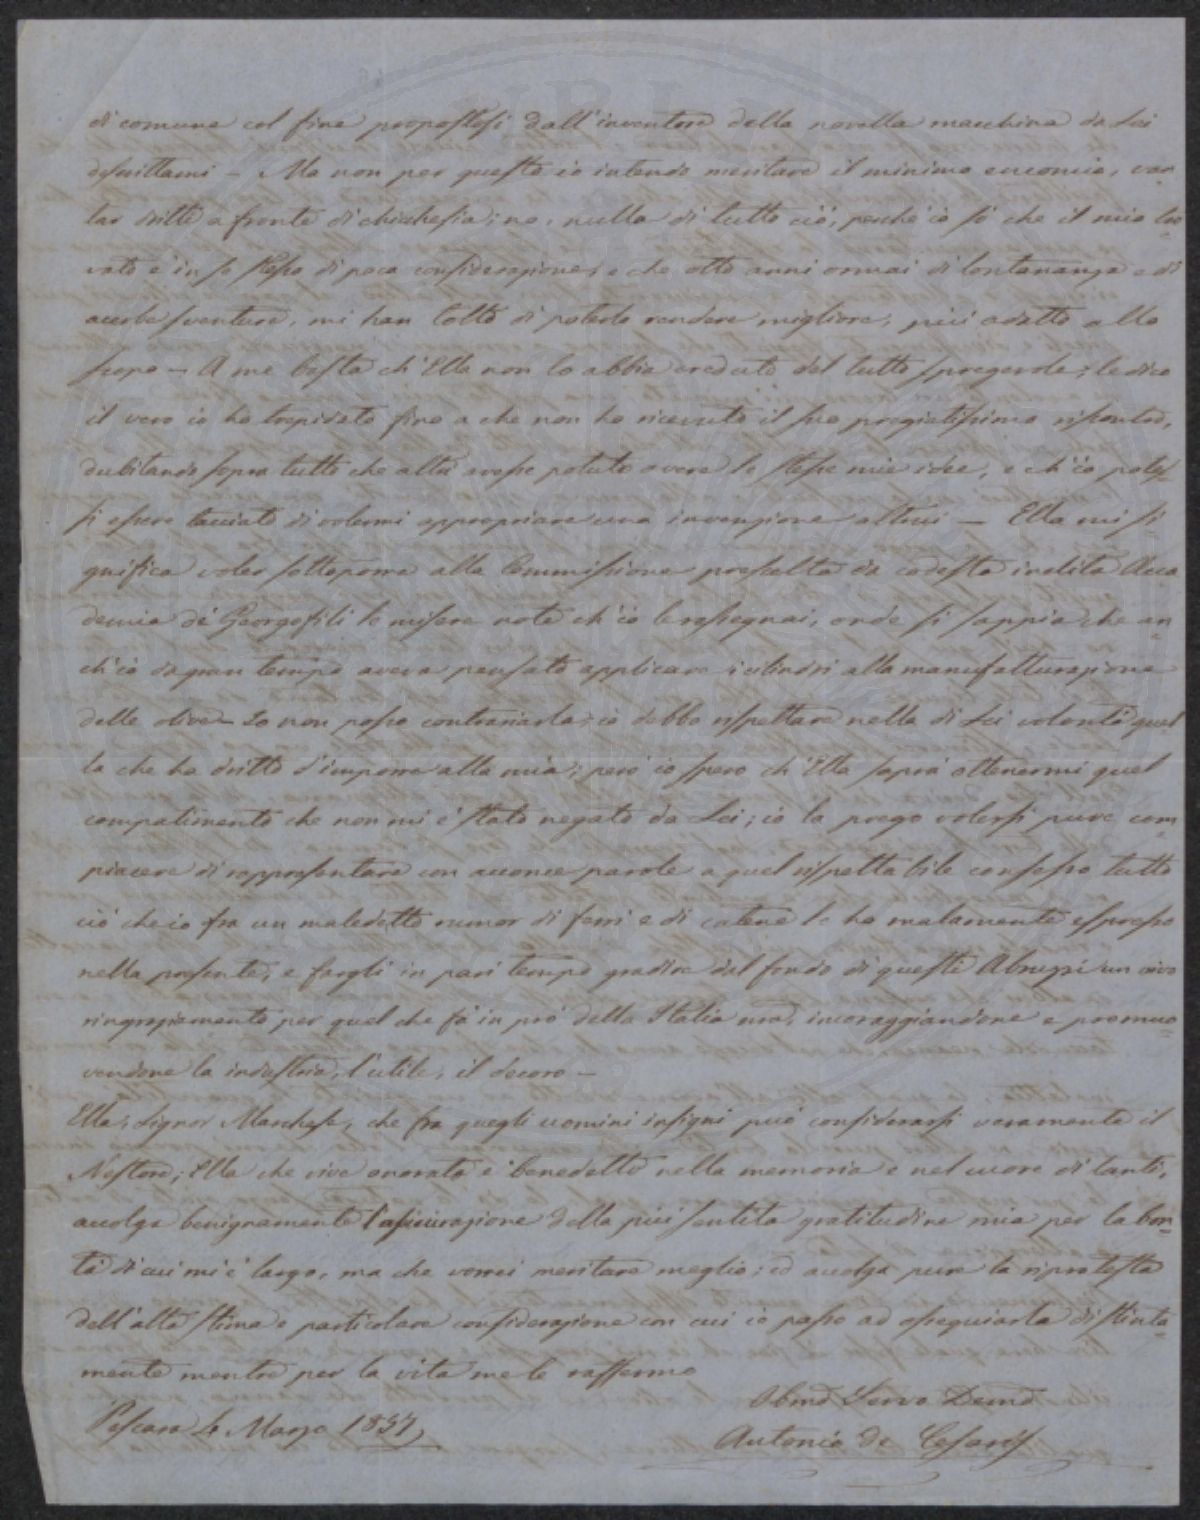 di comune col fine propostosi dall'inventore della novella macchina da Lei
descrittami – Ma non per questo io intendo meritare il minimo encomio, van
tar dritti a fronte di chichesia; no, nulla di tutto ciò, perchè io sò che il mio tro
vato è in se stesso di poca considerazione, e che otto anni ormai di lontananza e di
acerbe sventure, mi han tolto di poterlo rendere migliore, più adatto allo
scopo – A me basta ch'Ella non lo abbia creduto del tutto spregevole; le dico
il vero io ho trepidato fino a che non ho ricevuto il suo pregiatissimo riscontro,
dubitando sopra tutto che altri avesse potuto avere le stesse mie idee, e ch'io potes
si essere tacciato di volermi appropriare una invenzione altrui – Ella mi si
gnifica voler sottoporre alla Commissione prescelta da codesta inclita Acca
demia de' Georgofili le misere note ch'io le rassegnai, onde si sappia che an
ch'io da gran tempo aveva pensato applicare i cilindri alla manufatturazione
delle olive – Io non posso contrariarla; io debbo rispettare nella di Lei volontà quel
la che ha dritto d'imporre alla mia; però io spero ch'Ella saprà ottenermi quel
compatimento che non mi è stato negato da Lei; io la prego volersi pure com
piacere di rappresentare con acconce parole a quel rispettabile consesso tutto
ciò che io fra un maledetto rumor di ferri e di catene le ho malamente espresso
nella presente, e fargli in pari tempo gradire dal fondo di questi Abruzzi un vivo
ringraziamento per quel che fà in prò della Italia nra, incoraggiandone e promuo
vendone la industria, l'utile, il decoro –
Ella, Signor Marchese, che fra quegli uomini insigni può considerarsi veramente il
Nestore; Ella che vive onorato e benedetto nella memoria e nel cuore di tanti,
accolga benignamente l'assicurazione della più sentita gratitudine mia per la bon
tà di cui mi è largo, ma che vorrei meritare meglio; ed accolga pure la riprotesta
dell'alta stima e particolare considerazione con cui io passo ad ossequiarla distinta
mente mentre per la vita me le raffermo
Obmo Servo Devmo
Pescara 4 Marzo 1857
Antonio de Cesaris